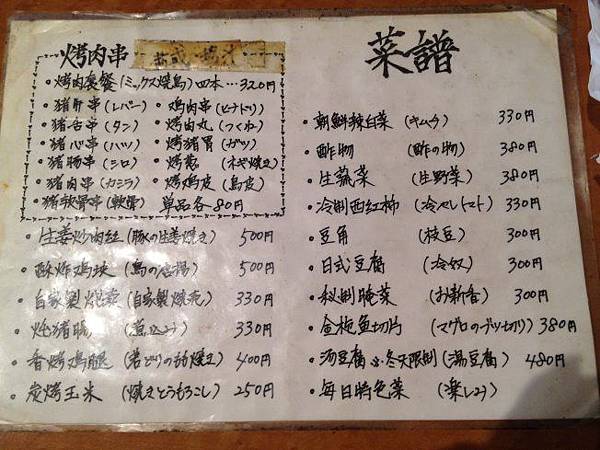 烤肉串
烤肉套餐(ミックス焼鳥)四本…320円
・猪肝串(レバー) ・鸡肉串(ヒナドリ)
・猪舌串(タン) ・烤肉丸(つくね)
・猪心串(ハツ) ・烤猪胃(ガツ)
・猪肠串(シロ) ・烤葱(ネギ焼き)
・猪肉串(カシラ) ・烤鸡皮(鳥皮)
・猪软骨串(軟骨) 単品各80円
・生姜炒肉红(豚の生姜焼き) 500円
・酥炸鸡块(鳥の唐揚) 500円
・自家製(自家製焼売) 330円
・炖猪(煮込み) 330円
・香烤鸡腿(若どりの焼き) 400円
・炭烤玉米(焼きとうもろこし) 250円
菜譜
・朝鮮辣白菜(キムチ) 330円
・酢物(酢の物) 380円
・生蔬菜(生野菜) 380円
・冷制西紅柿(冷やしトマト) 330円
・豆角(枝豆) 300円
・日式豆腐(冷奴) 300円
・秘制腌菜(お新香) 300円
・金枪鱼切片(マグロのブツ切り) 380円
・湯豆腐※冬天限制(湯豆腐) 480円
・每日特色菜(楽しみ)